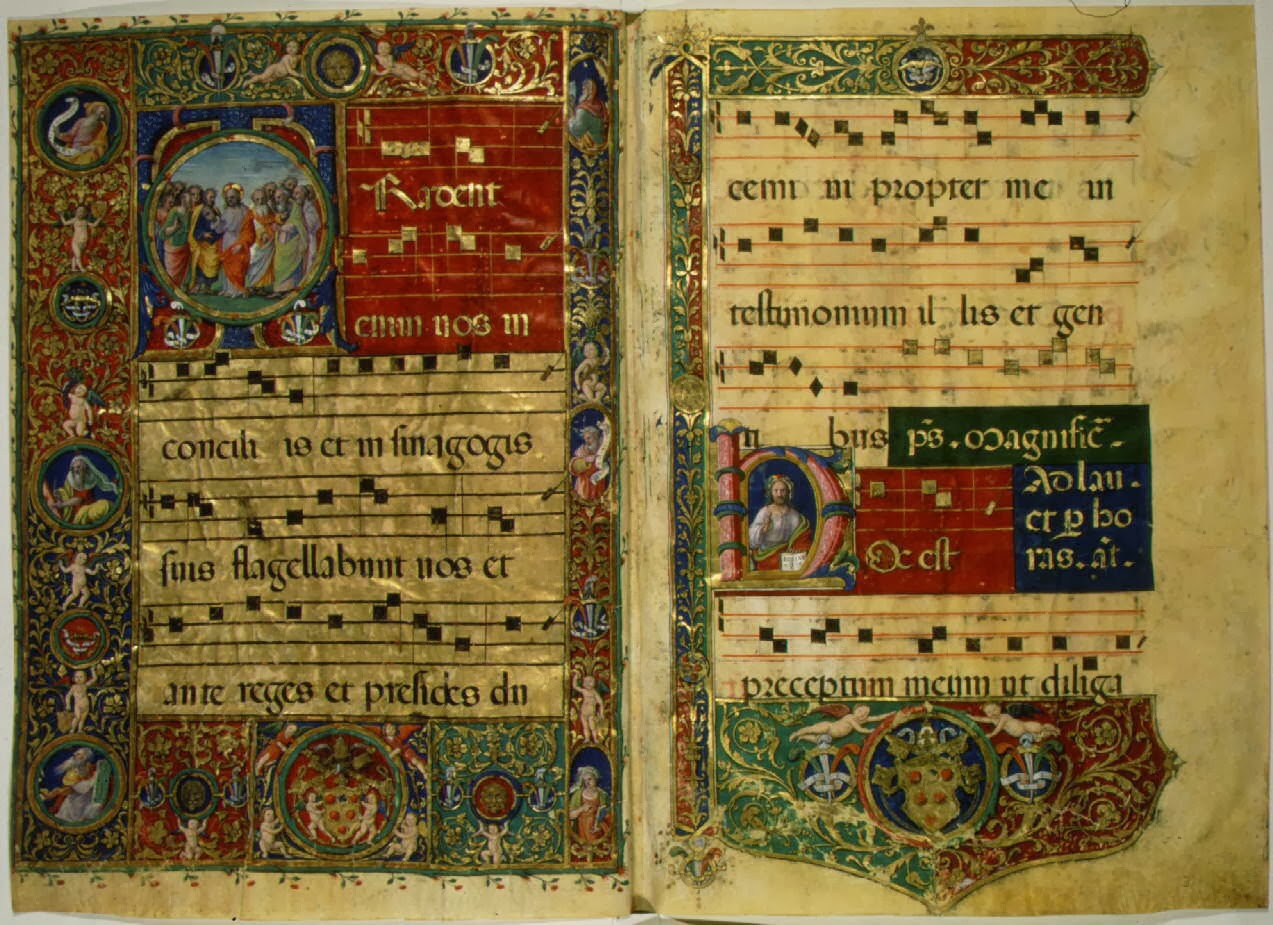 TRadent
enim uos in
concili is et in sinagogis
suis flagellabunt uos et
ante reges et presides du
cemi ni propter me in
testimonium il lis et gen
ti bus p̄s. Magnific̄.
HOc est
Ad lau.
et ꝑ ho
ras. āt.
preceptum meum ut diliga